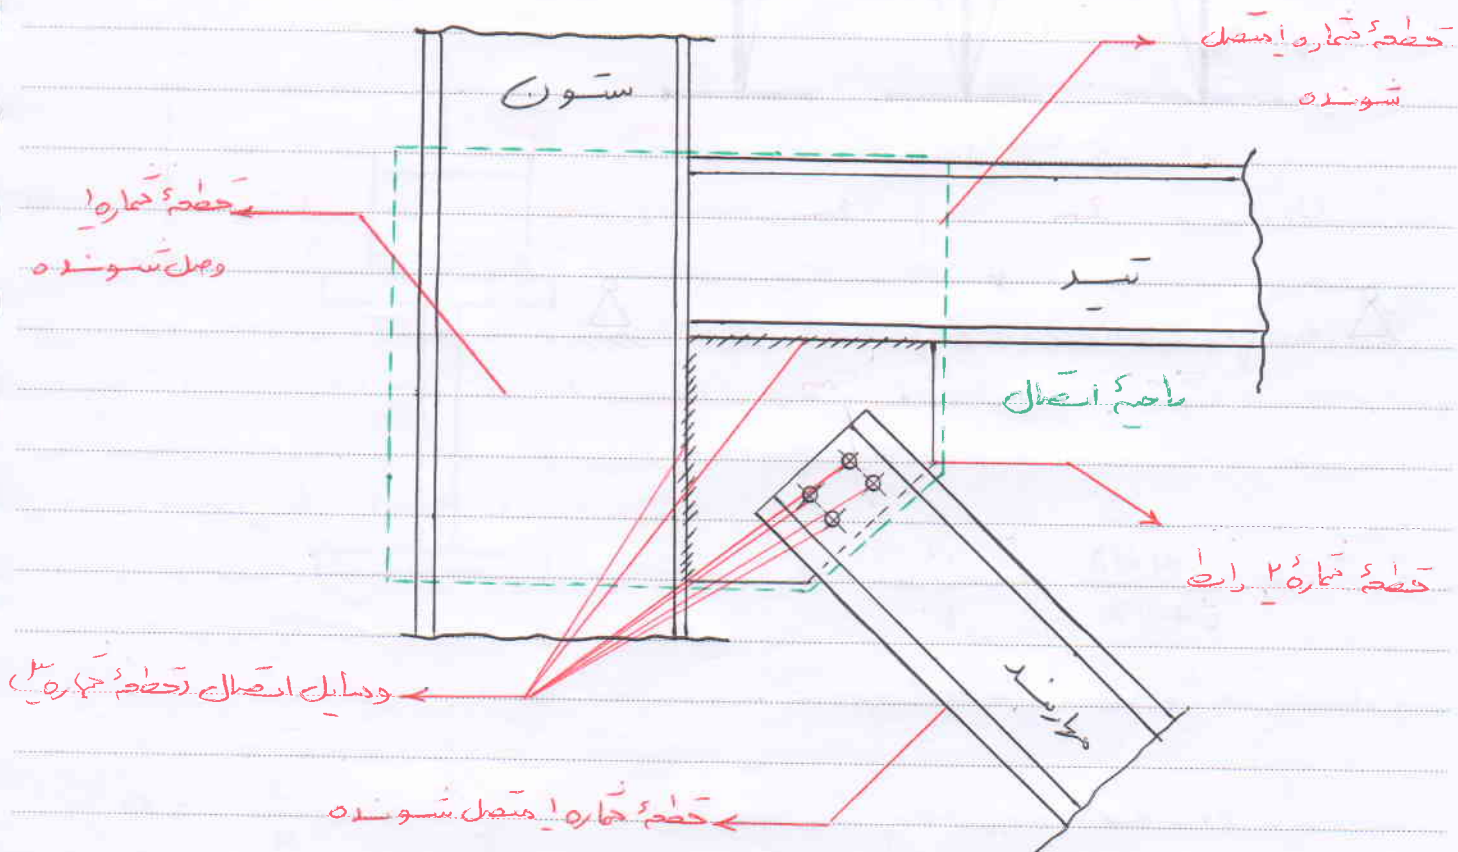 قطعهٔ شماره ۱ متصل
شونده
ستون
قطعهٔ شماره ۱
وصل شونده
تیر
ناحیهٔ اتصال
قطعهٔ شمارهٔ ۲ رابط
وسایل اتصال (قطعهٔ شماره ۳)
مهاربند
قطعهٔ شماره ۱ متصل شونده